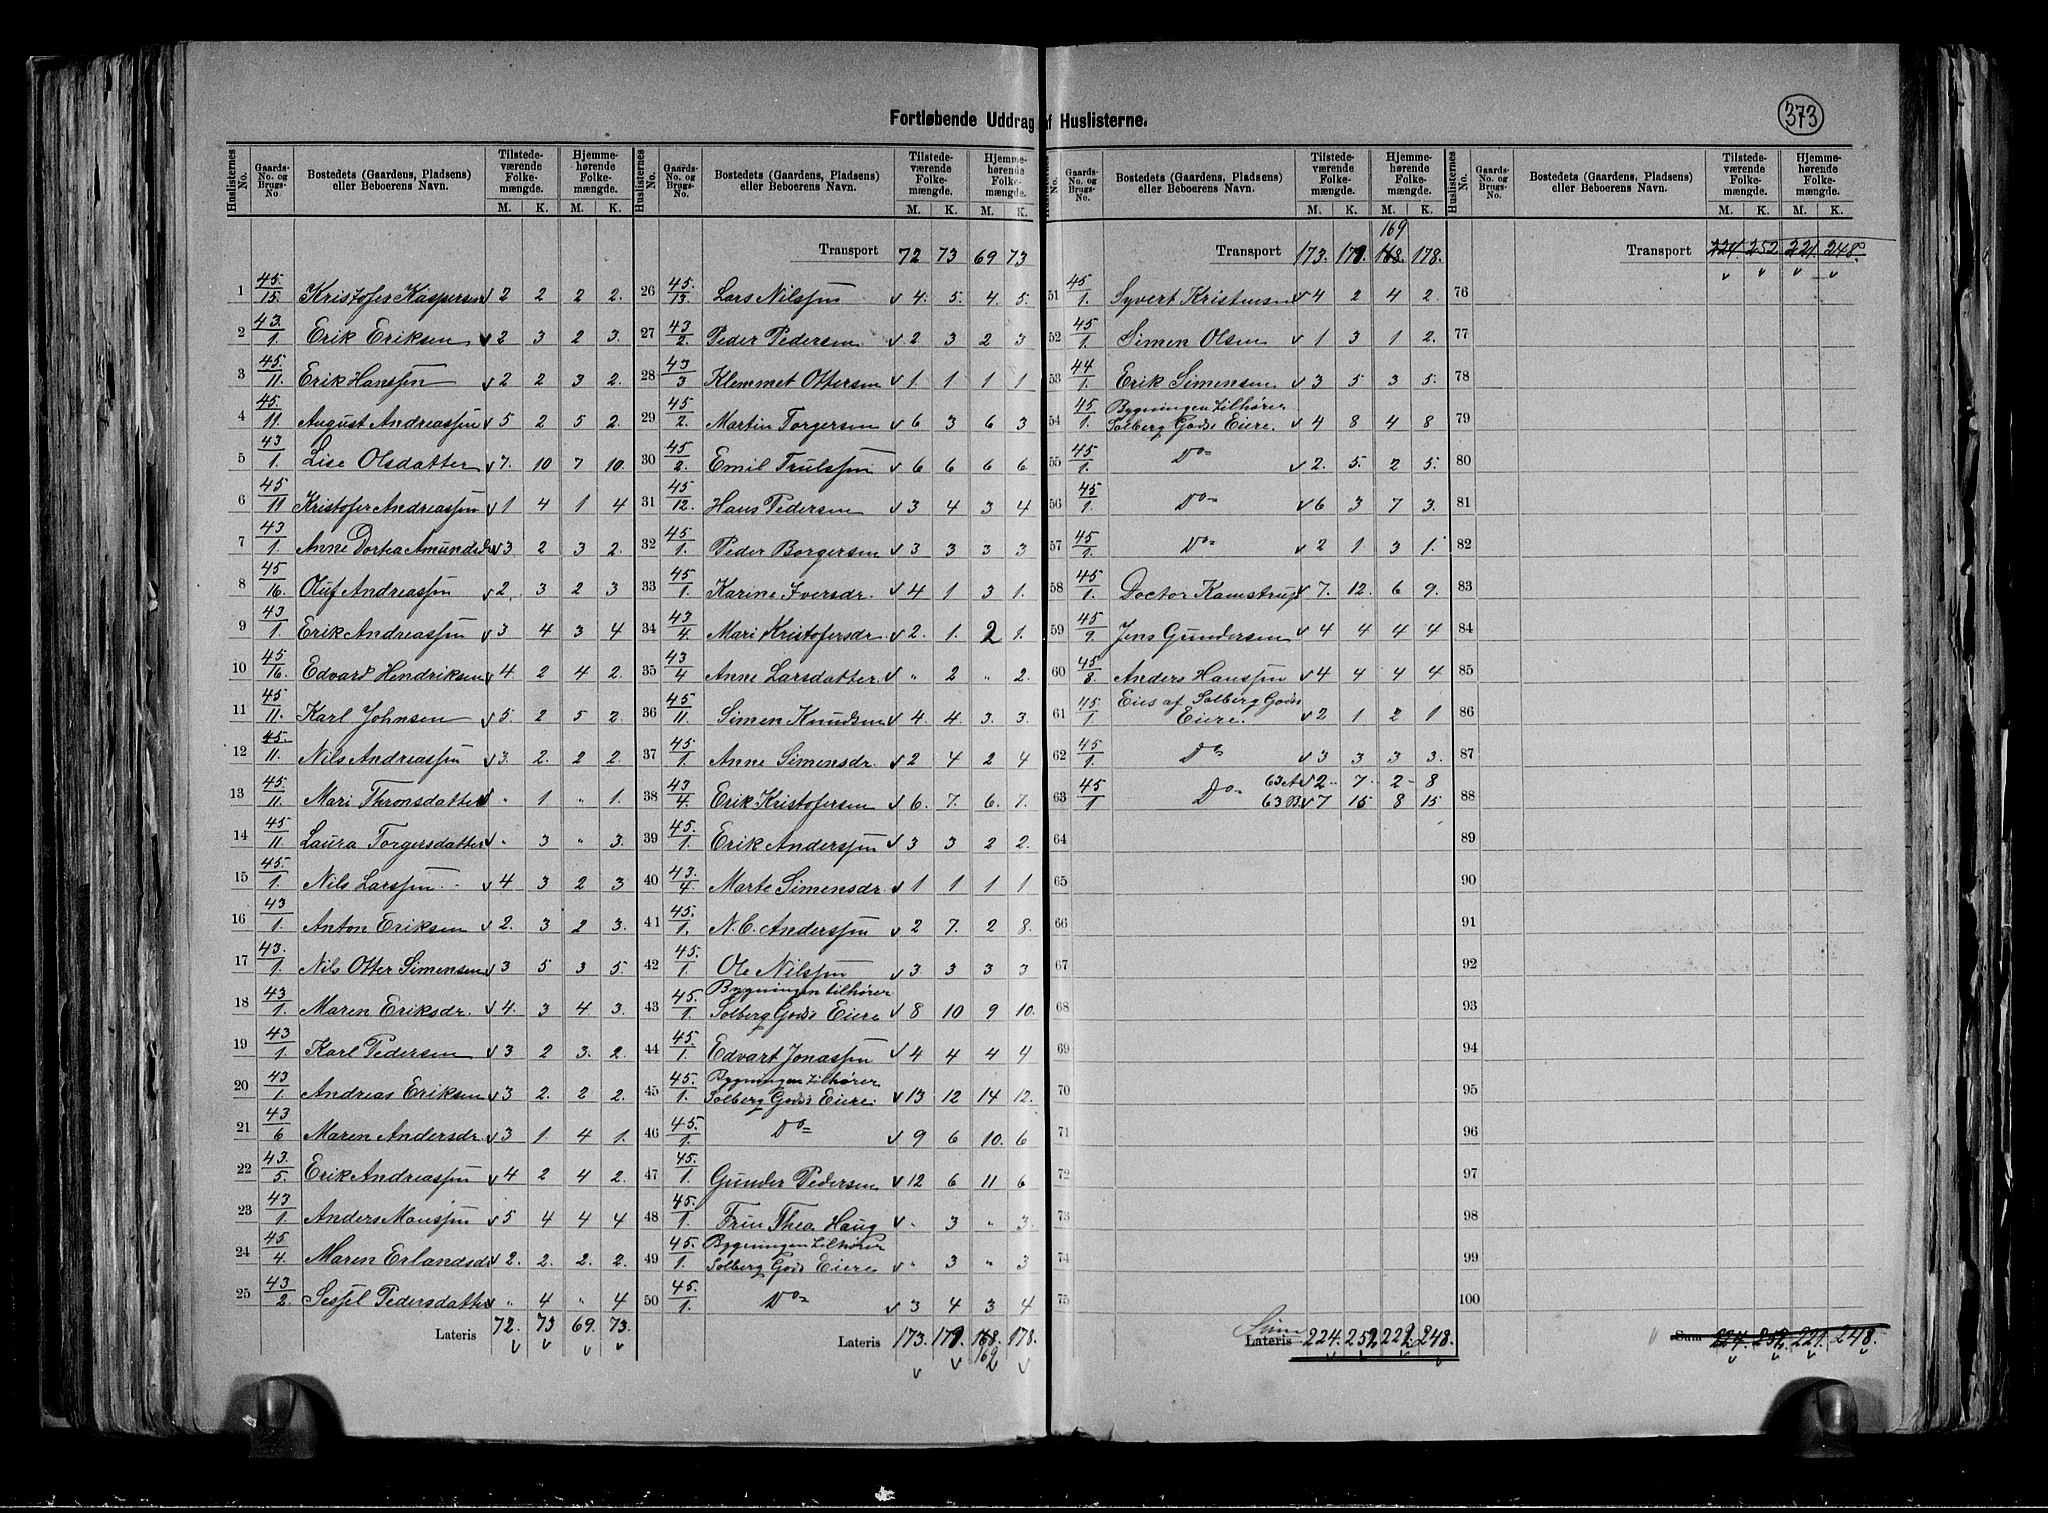 373
Fortløbende Uddrag af Huslisterne.
Huslisternes No. | Gaards-No. og Brugs-No. | Bostedets (Gaardens, Pladsens) eller Beboerens Navn. | Tilstedeværende Folkemængde. M. K. | Hjemmehørende Folkemængde. M. K.
1 45/15. Kristofer Kaspersen v 2 2 2 2.
2 43./1. Erik Eriksen v 2 3 2 3.
3 45./11. Erik Hanssen v 2 2 3 2.
4 45./11. August Andreassen v 5 2 5 2.
5 43/1. Lise Olsdatter v 7. 10 7 10.
6 45/11 Kristofer Andreassen v 1 4 1 4
7 43/1. Anne Dortea Amundsdr v 3 2 3 2.
8 45/16. Oluf Andreassen v 2. 3 2 3
9 43/1. Erik Andreassen v 3 4 3 4
10 45/16. Edvard Hendriksen v 4 2 4 2.
11 45/11. Karl Johnsen v 5. 2 5 2.
12 45./11. Nils Andreassen v 3. 2. 2 2.
13 45./11. Mari Thronsdatter v " 1 " 1.
14 45/11 Laura Torgersdatter v " 3 " 3.
15 45./1. Nils Larssen v 4 3 2 3
16 43/1. Anton Eriksen v 2. 3 2 3.
17 43./1. Nils Otter Simensen v 3 5 3 5.
18 43/1. Maren Eriksdr. v 4. 3 4 3.
19 43/1. Karl Pedersen v 3 2 3. 2.
20 43/1. Andreas Eriksen v 3 2. 2 2.
21 43/6 Maren Andersdr. v 3 1. 4 1.
22 43./5. Erik Andreassen v 4 2 4 2.
23 43/1. Anders Monssen v 5 4 4 4
24 45/4. Maren Erlandsdr v 2. 2. 2. 2.
25 43/2. Sessel Pedersdatter v " 4 " 4
Lateris 72. 73 69. 73.
v v v v
Transport 72 73 69 73
26 45./13. Lars Nilssen v 4. 5. 4. 5.
27 43/2. Peder Pedersen v 2 3 2 3
28 43/3 Klemmet Ottersen v 1. 1 1 1
29 45/2. Martin Torgersen v 6 3 6 3
30 45/2. Emil Trulssen v 6 6 6 6
31 45/12. Hans Pedersen v 3 4 3 4
32 45/1. Peder Borgersen v 3 3 3 3
33 45/1. Karine Iversdr. v 4 1 3 1.
34 43/4. Mari Kristofersdr. v 2. 1. 2 1.
35 43/4 Anne Larsdatter v " 2 " 2.
36 45/11. Simen Knudsen v 4. 4 3. 3.
37 45./1. Anne Simensdr. v 2 4 2 4
38 43./4. Erik Kristofersen v 6. 7. 6. 7.
39 45./1. Erik Anderssen v 3 3 2 2.
40 43./4. Marte Simensdr. v 1 1 1 1
41 45./1. N. C. Anderssen v 2 7. 2 8.
42 45./1. Ole Nilssen v 3 3 3 3
43 45./1. Bygningen tilhører Solberg Gods Eiere v 8 10 9 10.
44 45./1. Edvart Jonassen v 4 4 4 4
45 45./1. Bygningen tilhører Solberg Gods Eiere v 13 12 14 12.
46 45./1. Do= v 9 6 10. 6
47 45./1. Gunder Pedersen v 12 6 11 6
48 45./1. Frue Thea Haug v " 3 " 3.
49 45./1. Bygningen tilhører Solberg Gods Eiere v " 3 " 3
50 45./1. Do= v 3 4 3 4
Lateris 173. 179. 168. 178.
v v 169 v
169
Transport 173. 179. 168. 178.
51 45/1. Syvert Kristensen v 4 2 4 2.
52 45/1. Simen Olsen v 1 3 1 2.
53 44/1. Erik Simensen v 3 5 3 5.
54 45/1. Bygningen tilhører Solberg Gods Eiere. v 4 8 4 8
55 45/1. Do= v 2. 5. 2 5.
56 45/1. Do= v 6 3 7 3.
57 45/1. Do= v 2 1 3 1.
58 45/1. Doctor Kamstrup v 7. 12. 6 9.
59 45/9. Jens Gundersen v 4 4 4 4
60 45/8. Anders Hanssen v 4 4 4 4
61 45/1. Eies af Solberg Gods Eiere. v 2 1 2 1
62 45/1. Do v 3 3 3 3.
63 45/1 Do= 63 A. v 2 7 2 8
63 B. v 7 15 8 15
64
65
66
67
68
69
70
71
72
73
74
75
Sum Lateris 224. 252. 222. 248.
v v v v
Transport 224. 252. 221. 248.
v v v v
76
77
78
79
80
81
82
83
84
85
86
87
88
89
90
91
92
93
94
95
96
97
98
99
100
Sum 224. 252. 221. 248.
v v v v